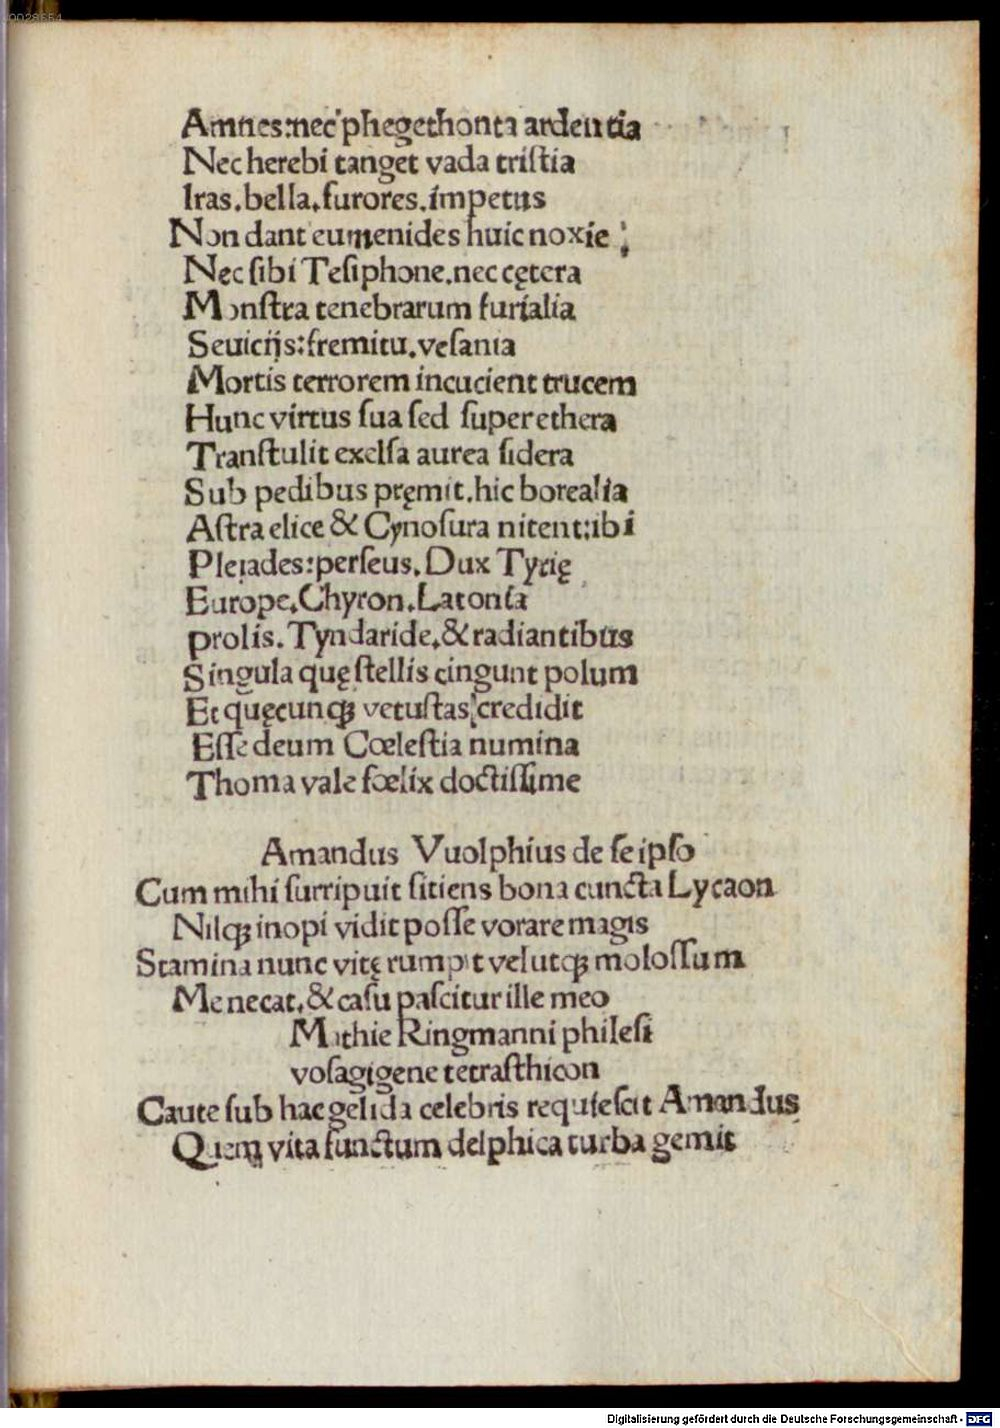 0028654
Amnes:nec phegethonta ardentia
Nec herebi tanget vada triſtia
Iras.bella.furores.impetus
Non dant eumenides huic noxie;
Nec ſibi Teſiphone.nec cętera
Monſtra tenebrarum furialia
Seuiciis:fremitu.veſania
Mortis terrorem incucient trucem
Hunc virtus ſua ſed ſuper ethera
Tranſtulit exelſa aurea ſidera
Sub pedibus pręmit.hic borealia
Aſtra elice & Cynoſura nitent:ibi
Pleiades:perſeus.Dux Tyrię
Europe.Chyron.Latonia
prolis.Tyndaride.& radiantibus
Singula quę ſtellis cingunt polum
Et quęcunqꝫ vetuſtas credidit
Eſſe deum Cœleſtia numina
Thoma vale fœlix doctiſſime
Amandus Vuolphius de ſe ipſo
Cum mihi ſurripuit ſitiens bona cuncta Lycaon
Nilqꝫ inopi vidit poſſe vorare magis
Stamina nunc vitę rumpit velutqꝫ moloſſum
Me necat.& caſu paſcitur ille meo
Mathie Ringmanni phileſi
voſagigene tetraſthicon
Caute ſub hac gelida celebris requieſcit Amandus
Quem vita functum delphica turba gemit
Digitalisierung gefördert durch die Deutsche Forschungsgemeinschaft - DFG